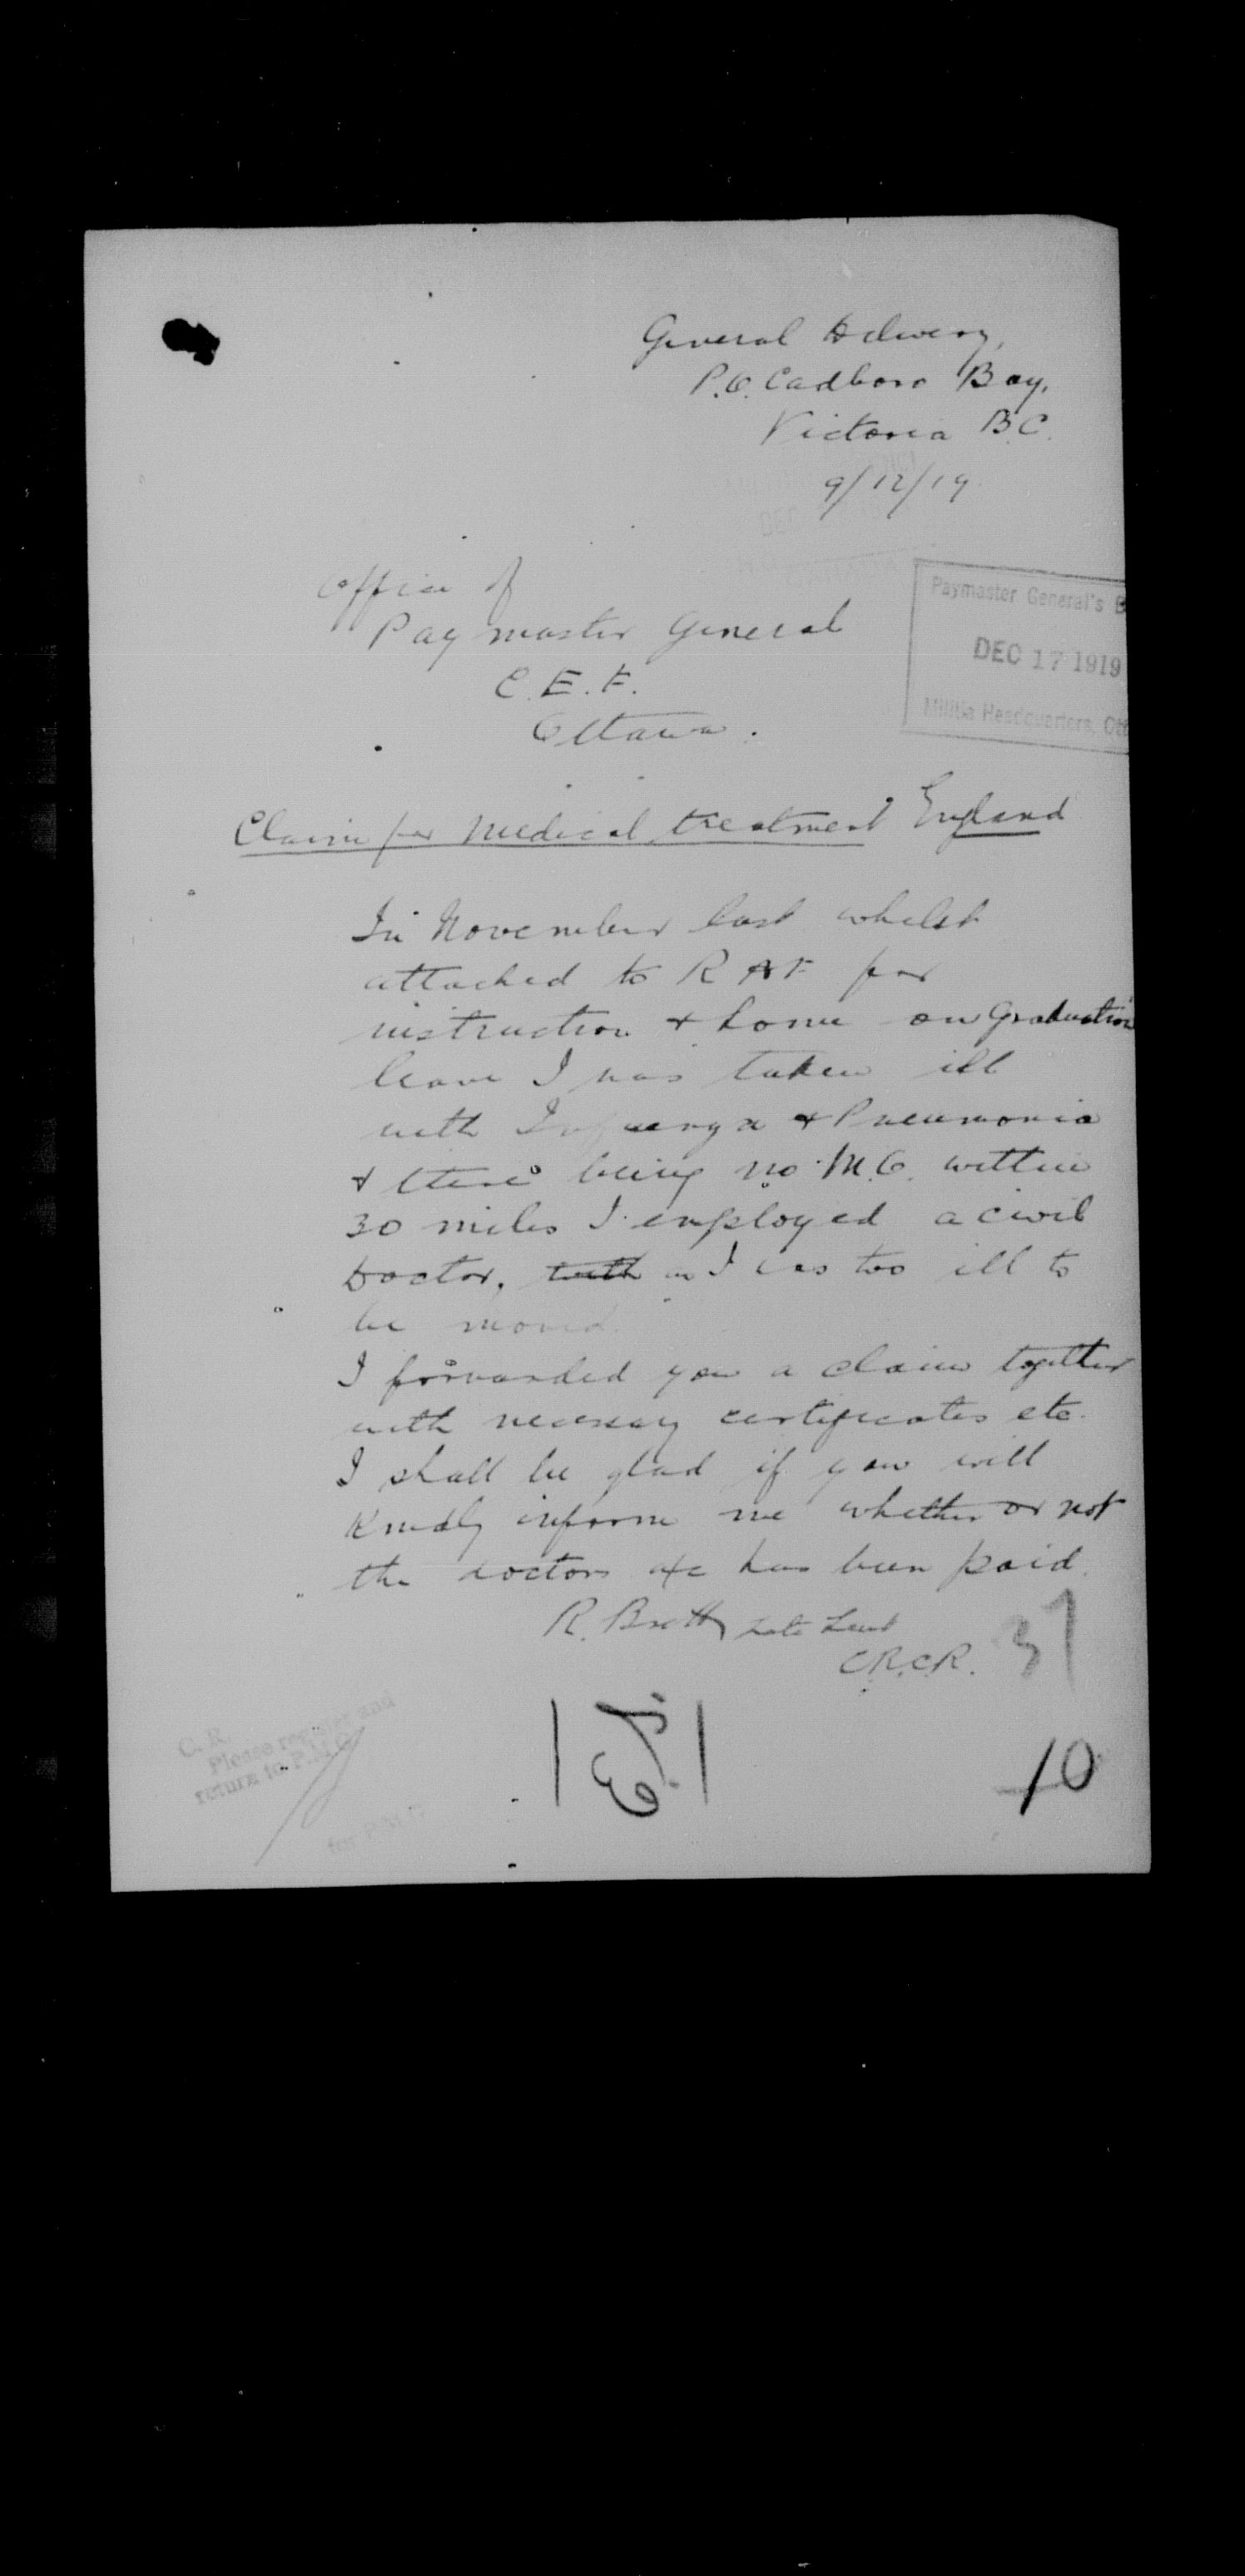 General Delivery,
P.O. Cadboro Bay,
Victoria B.C.
9/12/19
Office of
Paymaster General
C.E.F.
Ottawa.
Paymaster General's B
DEC 17 1919
Militia Headquarters, Ott
Claim for Medical treatment England
In November last whilst
attached to RAF for
instruction + home on Graduation
leave I was taken ill
with Influenza + Pneumonia
+ there being no M.O. within
30 miles I employed a civil
Doctor, as I was too ill to
be moved.
I forwarded you a claim together
with necessary certificates etc.
I shall be glad if you will
Kindly inform me whether or not
the doctors a/c has been paid.
R. Brett late Lieut
C.R.C.R.
37
C. R.
Please register and
return to P.M.G.
for P.M.G.
10